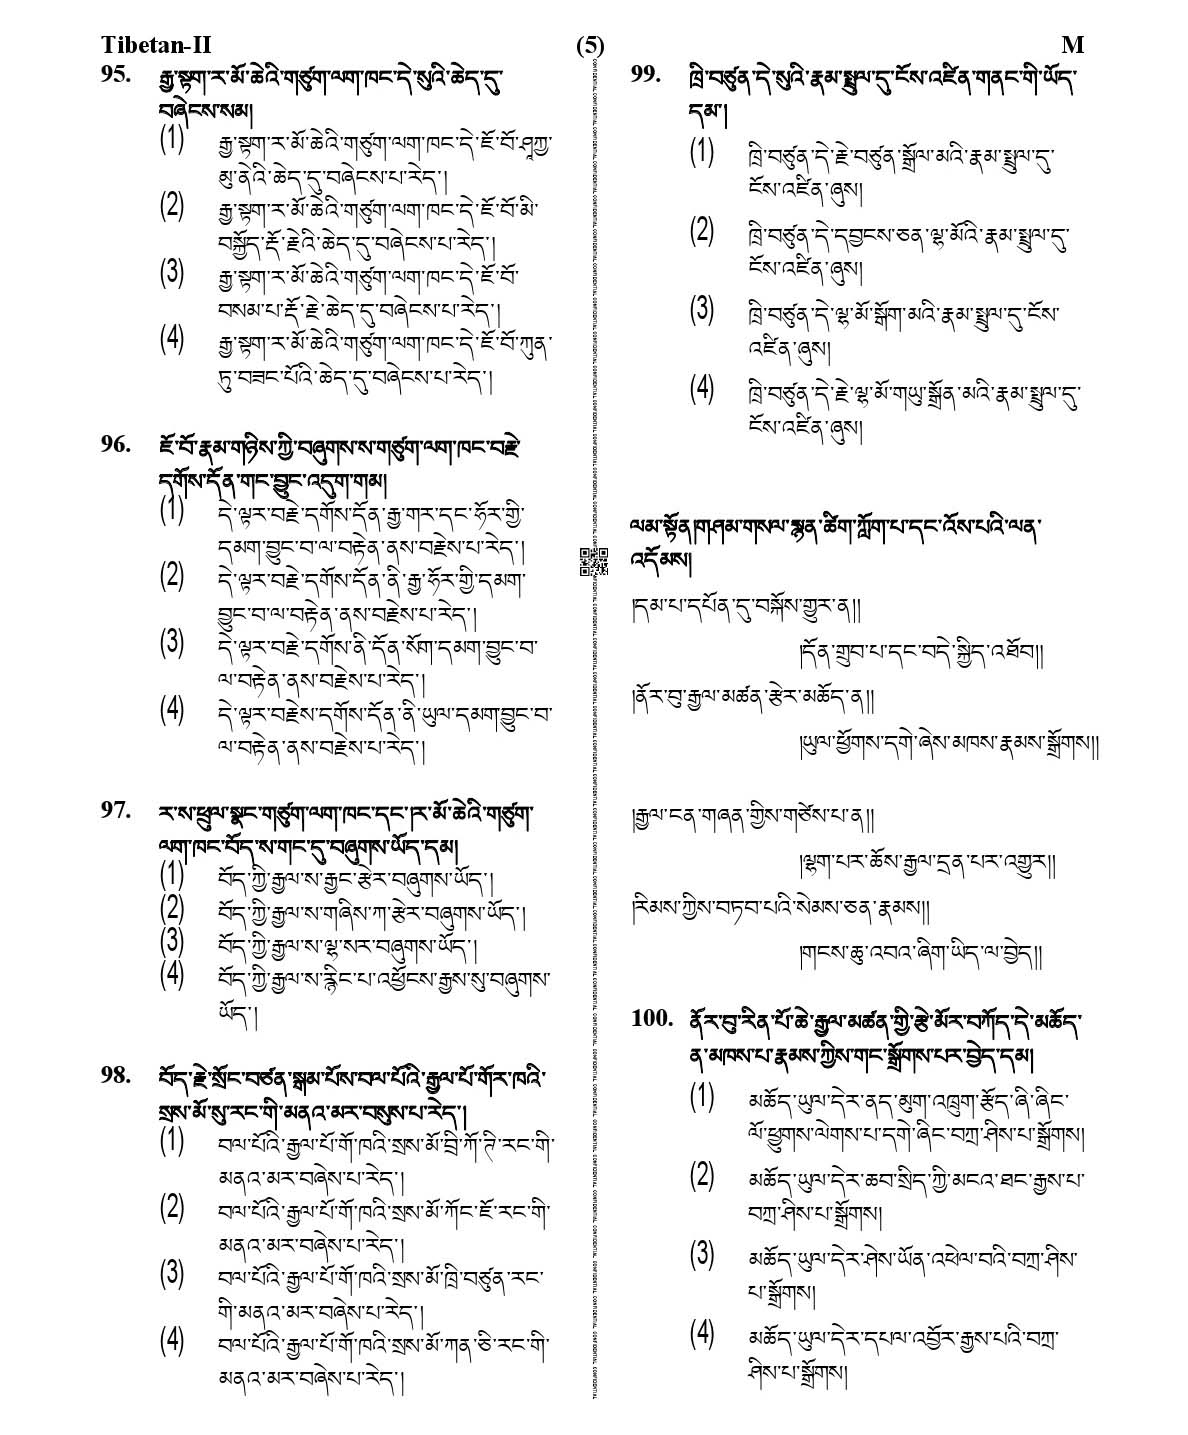 Tibetan-II
(5)
M
95. རྒྱ་སྟག་ར་མོ་ཆེའི་གཙུག་ལག་ཁང་དེ་སུའི་ཆེད་དུ་
བཞེངས་སམ།
(1) རྒྱ་སྟག་ར་མོ་ཆེའི་གཙུག་ལག་ཁང་དེ་ཇོ་བོ་ཤཱཀྱ་
མུ་ནེའི་ཆེད་དུ་བཞེངས་པ་རེད་།
(2) རྒྱ་སྟག་ར་མོ་ཆེའི་གཙུག་ལག་ཁང་དེ་ཇོ་བོ་མི་
བསྐྱོད་རྡོ་རྗེའི་ཆེད་དུ་བཞེངས་པ་རེད་།
(3) རྒྱ་སྟག་ར་མོ་ཆེའི་གཙུག་ལག་ཁང་དེ་ཇོ་བོ་
བསམ་པ་རྡོ་རྗེ་ཆེད་དུ་བཞེངས་པ་རེད་།
(4) རྒྱ་སྟག་ར་མོ་ཆེའི་གཙུག་ལག་ཁང་དེ་ཇོ་བོ་ཀུན་
ཏུ་བཟང་པོའི་ཆེད་དུ་བཞེངས་པ་རེད་།
96. ཇོ་བོ་རྣམ་གཉིས་ཀྱི་བཞུགས་ས་གཙུག་ལག་ཁང་བརྗེ་
དགོས་དོན་གང་བྱུང་འདུག་གམ།
(1) དེ་ལྟར་བརྗེ་དགོས་དོན་རྒྱ་གར་དང་ཧོར་གྱི་
དམག་བྱུང་བ་ལ་བརྟེན་ནས་བརྗེས་པ་རེད་།
(2) དེ་ལྟར་བརྗེ་དགོས་དོན་ནི་རྒྱ་ཧོར་གྱི་དམག་
བྱུང་བ་ལ་བརྟེན་ནས་བརྗེས་པ་རེད་།
(3) དེ་ལྟར་བརྗེ་དགོས་ནི་དོན་སོག་དམག་བྱུང་བ་
ལ་བརྟེན་ནས་བརྗེས་པ་རེད་།
(4) དེ་ལྟར་བརྗེས་དགོས་དོན་ནི་ཡུལ་དམག་བྱུང་བ་
ལ་བརྟེན་ནས་བརྗེས་པ་རེད་།
97. ར་ས་ཕྲུལ་སྣང་གཙུག་ལག་ཁང་དང་།ར་མོ་ཆེའི་གཙུག་
ལག་ཁང་བོད་ས་གང་དུ་བཞུགས་ཡོད་དམ།
(1) བོད་ཀྱི་རྒྱལ་ས་རྒྱང་རྩེར་བཞུགས་ཡོད་།
(2) བོད་ཀྱི་རྒྱལ་ས་གཞིས་ཀ་རྩེར་བཞུགས་ཡོད་།
(3) བོད་ཀྱི་རྒྱལ་ས་ལྷ་སར་བཞུགས་ཡོད་།
(4) བོད་ཀྱི་རྒྱལ་ས་རྙིང་པ་འཕྱོངས་རྒྱས་སུ་བཞུགས་
ཡོད་།
98. བོད་རྗེ་སྲོང་བཙན་སྒམ་པོས་བལ་པོའི་རྒྱལ་པོ་གོར་ཁའི་
སྲས་མོ་སུ་རང་གི་མནའ་མར་བསུས་པ་རེད་།
(1) བལ་པོའི་རྒྱལ་པོ་གོ་ཁའི་སྲས་མོ་བྲི་ཀོ་ཊི་རང་གི་
མནའ་མར་བཞེས་པ་རེད་།
(2) བལ་པོའི་རྒྱལ་པོ་གོ་ཁའི་སྲས་མོ་ཀོང་ཇོ་རང་གི་
མནའ་མར་བཞེས་པ་རེད་།
(3) བལ་པོའི་རྒྱལ་པོ་གོ་ཁའི་སྲས་མོ་ཁྲི་བཙུན་རང་
གི་མནའ་མར་བཞེས་པ་རེད་།
(4) བལ་པོའི་རྒྱལ་པོ་གོ་ཁའི་སྲས་མོ་ཀན་ཅི་རང་གི་
མནའ་མར་བཞེས་པ་རེད་།
99. ཁྲི་བཙུན་དེ་སུའི་རྣམ་སྤྲུལ་དུ་ངོས་འཛིན་གནང་གི་ཡོད་
དམ་།
(1) ཁྲི་བཙུན་དེ་རྗེ་བཙུན་སྒྲོལ་མའི་རྣམ་སྤྲུལ་དུ་
ངོས་འཛིན་ཞུས།
(2) ཁྲི་བཙུན་དེ་དབྱངས་ཅན་ལྷ་མོའི་རྣམ་སྤྲུལ་དུ་
ངོས་འཛིན་ཞུས།
(3) ཁྲི་བཙུན་དེ་ལྷ་མོ་སྒྲོག་མའི་རྣམ་སྤྲུལ་དུ་ངོས་
འཛིན་ཞུས།
(4) ཁྲི་བཙུན་དེ་རྗེ་ལྷ་མོ་གཡུ་སྒྲོན་མའི་རྣམ་སྤྲུལ་དུ་
ངོས་འཛིན་ཞུས།
ལམ་སྟོན།གཤམ་གསལ་སྙན་ཚིག་ཀློག་པ་དང་འོས་པའི་ལན་
འདོམས།
།དམ་པ་དཔོན་དུ་བསྐོས་གྱུར་ན།།
།དོན་གྲུབ་པ་དང་བདེ་སྐྱིད་འཐོབ།།
།ནོར་བུ་རྒྱལ་མཚན་རྩེར་མཆོད་ན།།
།ཡུལ་ཕྱོགས་དགེ་ཞེས་མཁས་རྣམས་སྒྲོགས།།
།རྒྱལ་ངན་གཞན་གྱིས་གཙེས་པ་ན།།
།ལྷག་པར་ཆོས་རྒྱལ་དྲན་པར་འགྱུར།།
།རིམས་ཀྱིས་བཏབ་པའི་སེམས་ཅན་རྣམས།།
།གངས་ཆུ་འབའ་ཞིག་ཡིད་ལ་བྱེད།།
100. ནོར་བུ་རིན་པོ་ཆེ་རྒྱལ་མཚན་གྱི་རྩེ་མོར་བཀོད་དེ་མཆོད་
ན་མཁས་པ་རྣམས་ཀྱིས་གང་སྒྲོགས་པར་བྱེད་དམ།
(1) མཆོད་ཡུལ་དེར་ནད་མུག་འཁྲུག་རྩོད་ཞི་ཞིང་
ལོ་ཕྱུགས་ལེགས་པ་དགེ་ཞིང་བཀྲ་ཤིས་པ་སྒྲོགས།
(2) མཆོད་ཡུལ་དེར་ཆབ་སྲིད་ཀྱི་མངའ་ཐང་རྒྱས་པ་
བཀྲ་ཤིས་པ་སྒྲོགས།
(3) མཆོད་ཡུལ་དེར་ཤེས་ཡོན་འཕེལ་བའི་བཀྲ་ཤིས་
པ་སྒྲོགས།
(4) མཆོད་ཡུལ་དེར་དཔལ་འབྱོར་རྒྱས་པའི་བཀྲ་
ཤིས་པ་སྒྲོགས།